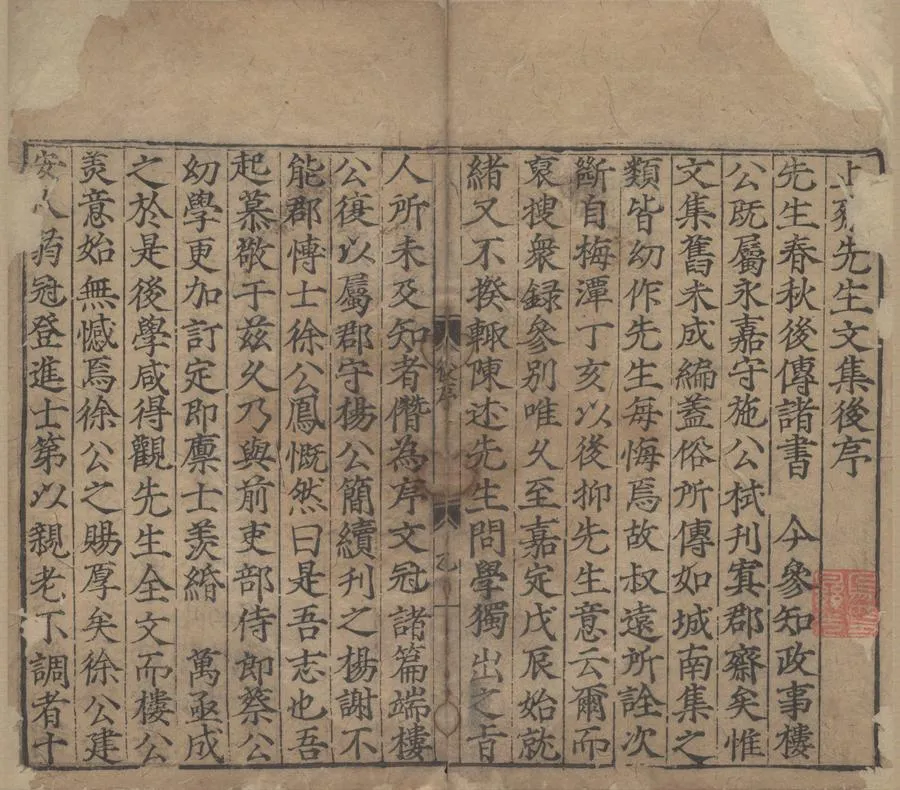 止齋先生文集後序
先生春秋後傳諸書　今參知政事樓
公既屬永嘉守施公栻刊寘郡齋矣惟
文集舊未成編蓋俗所傳如城南集之
類皆幼作先生每悔焉故叔遠所詮次
斷自梅潭丁亥以後抑先生意云爾而
裒搜衆録參別唯久至嘉定戊辰始就
緒又不揆輒陳述先生問學獨出之旨
後序
乙
人所未及知者僭為序文冠諸篇端樓
公復以屬郡守楊公簡續刊之楊謝不
能郡愽士徐公鳳慨然曰是吾志也吾
起慕敬于兹久乃與前吏部侍郎蔡公
幼學更加訂定即廪士羨緡　萬亟成
之於是後學咸得觀先生全文而樓公
羨意始無憾焉徐公之賜厚矣徐公建
安人弱冠登進士第以親老不調者十